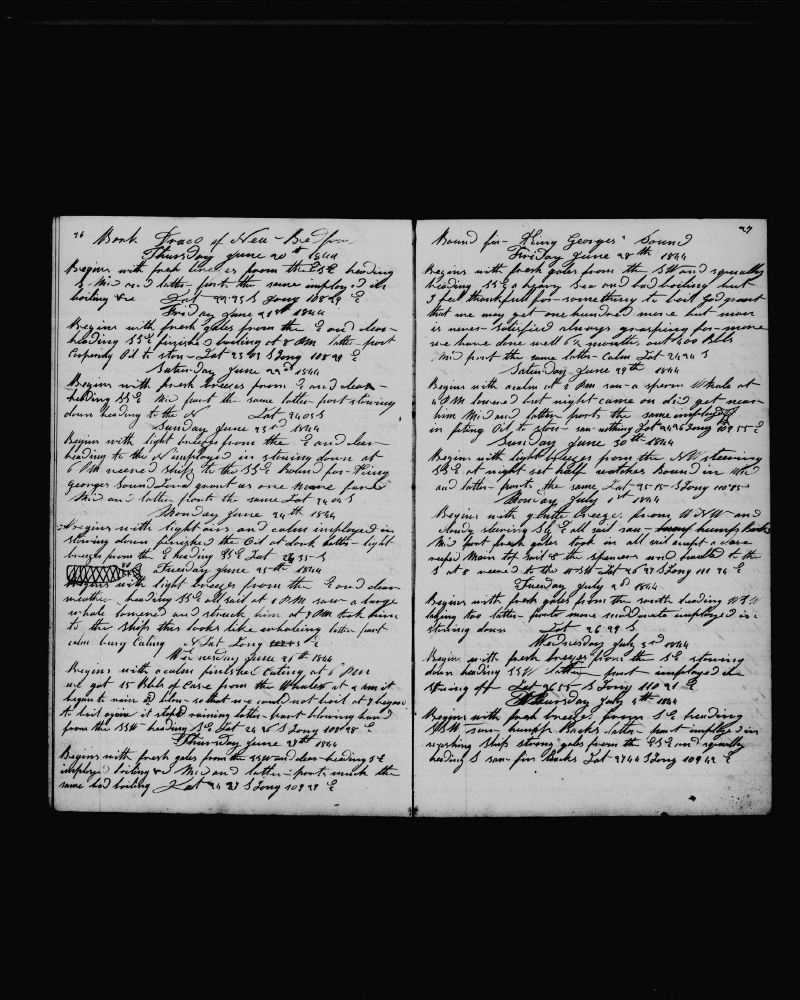 76 Bark Draco of New Bedford
Thursday June 20th 1844
Begins with fresh breezes from the ESE heading
S Mid and latter part the same imployed in
boiling &c Lat S Long 108 29 E
Friday June 21st 1844
Begins with fresh gales from the E and clear
heading SSE finished boiling at 8 PM latter part
Oil to stow Lat 25 S Long 108 29 E
Saturday June 22nd 1844
Begins with fresh breezes from E and clear
heading SSE Mid part the same latter part stowing
down heading to the N Lat 2405 S
Sunday June 23rd 1844
Begins with light breezes from the E and clear
heading to the N imployed in stowing down at
6 PM weared ship to the SSE Bound for King
georges Sound God grant us one more fare
Mid and latter parts the same Lat 2404 S
Monday June 24th 1844
Begins with light airs and calm imployed in
stowing down finished the Oil at dark latter light
breezes from the E heading SSE Lat 35 S
Tuesday June 25th 1844
Begins with light breezes from the E and clear
weather heading SSE all sail at 1 PM saw a large
whale lowered and struck him at PM took him
to the ship this looks like whaleing latter part
calm busy Cuting Lat Long E
Wednesday June 26th 1844
Begins with a calm finished Cuting at 6 PM
we got 15 Bbls of Case from the Whale at 2 am it
began to rain and blow so that we could not boil at 7 began
to boil again it stopd raining latter part blowing hard
from the SSW heading SE Lat 24 26 S Long 108 28 E
Thursday June 27th 1844
Begins with fresh gales from the SSW and clear heading SE
imployed boiling &c Mid and latter part much the
same bad boiling Lat 24 27 S Long 109 29 E
Bound for King Georges Sound 77
Friday June 28th 1844
Begins with fresh gales from the SW and squally
heading SSE a heavy Sea and bad boiling but
I feel thankful for something to boil God grant
that we may get one hundred more but man
is never satisfied always grasping for more
we have done well 6½ months out 400 Bbls
Mid part the same latter Calm Lat 2424 S
Saturday June 29th 1844
Begins with a calm at 3 PM saw a sperm Whale at
4 PM lowered but night came on did get near
him Mid and latter parts the same imployed
in fiting Oil to stow saw nothing Lat 2426 Long 109 55 E
Sunday June 30th 1844
Begins with light breezes from the NW steering
SSE at night set half watches Bound in Mid
and latter parts the same Lat 25 15 S Long 110 05
Monday July 1st 1844
Begins with a breeze from WNW and
cloudy steering SSE all sail saw humpbacks
Mid part fresh gales took in all sail except a close
reefed Main top sail & the spencer and headed to the
S at 8 weared to the WSW Lat 26 27 S Long 111 24 E
Tuesday July 2nd 1844
Begins with fresh gales from the south heading WSW
laying too latter parts more moderate imployed in
stowing down Lat 26 29 S
Wednesday July 3rd 1844
Begins with fresh breezes from the SE stowing
down heading SSW latter part imployed in
Stowing off Lat 2655 S Long 110 21 E
Thursday July 4th 1844
Begins with fresh breezes from SE heading
SSW saw hump Backs latter part imployed in
washing Ship strong gales from the ESE and squally
heading S saw fin Backs Lat 2744 S Long 109 42 E